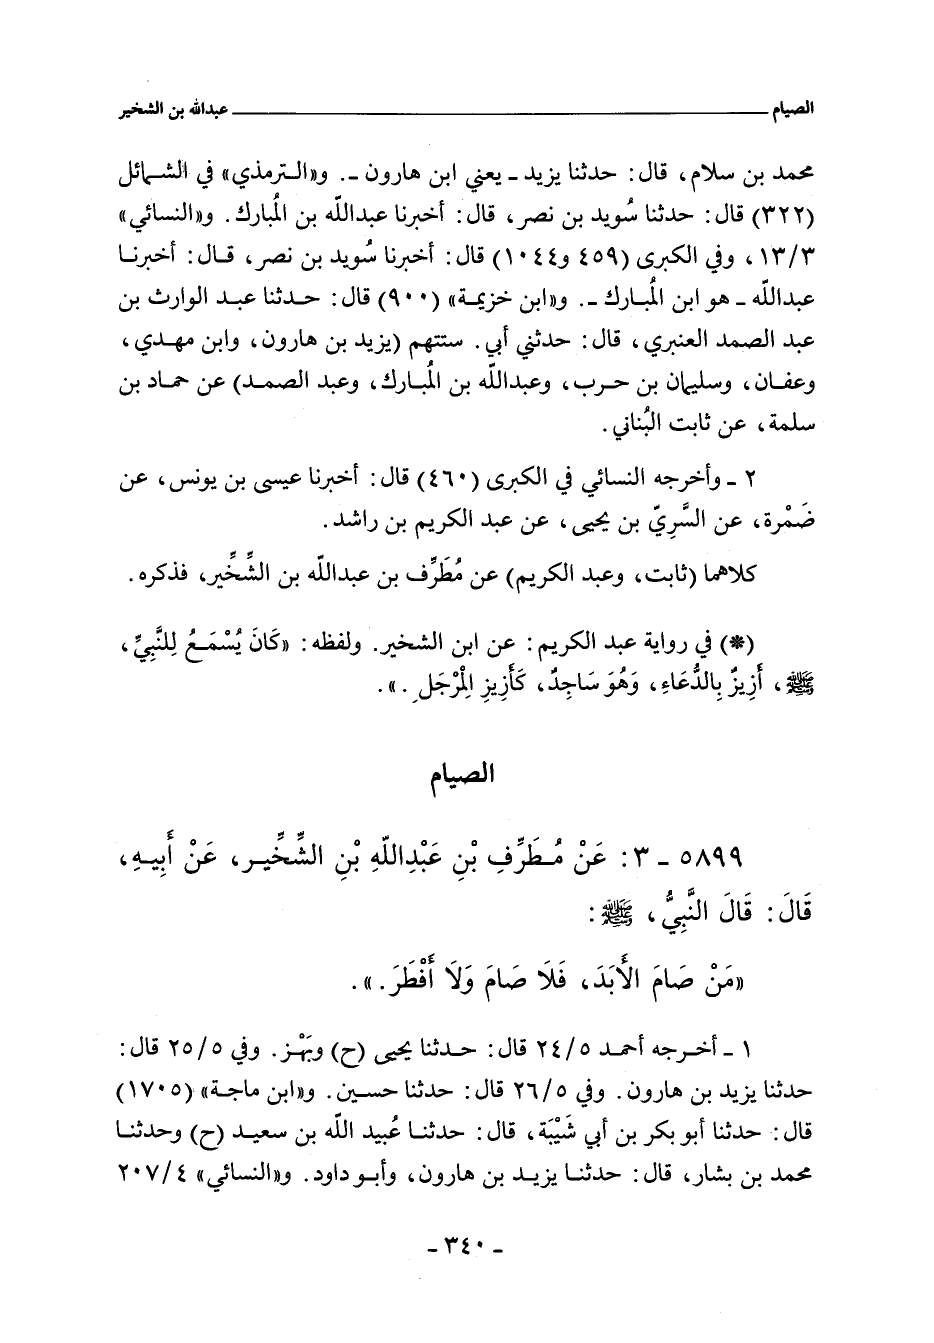 الصيام ــــــ عبدالله بن الشخير
محمد بن سلام، قال: حدثنا يزيد ـ يعني ابن هارون ـ. و«الترمذي» في الشمائل
(٣٢٢) قال: حدثنا سُويد بن نصر، قال: أخبرنا عبدالله بن المُبارك. و«النسائي»
١٣/٣، وفي الكبرى (٤٥٩ و١٠٤٤) قال: أخبرنا سُويد بن نصر، قال: أخبرنا
عبدالله ـ هو ابن المُبارك ـ. و«ابن خزيمة» (٩٠٠) قال: حدثنا عبد الوارث بن
عبد الصمد العنبري، قال: حدثني أبي. ستتهم (يزيد بن هارون، وابن مهدي،
وعفان، وسليمان بن حرب، وعبدالله بن المُبارك، وعبد الصمد) عن حماد بن
سلمة، عن ثابت البُناني.
٢ ـ وأخرجه النسائي في الكبرى (٤٦٠) قال: أخبرنا عيسى بن يونس، عن
ضَمْرة، عن السَّرِيّ بن يحيى، عن عبد الكريم بن راشد.
كلاهما (ثابت، وعبد الكريم) عن مُطَرِّف بن عبدالله بن الشِّخِّير، فذكره.
(*) في رواية عبد الكريم: عن ابن الشخير. ولفظه: «كَانَ يُسْمَعُ لِلنَّبِيِّ،
ﷺ، أَزِيزٌ بِالدُّعَاءِ، وَهُوَ سَاجِدٌ، كَأَزِيزِ الْمِرْجَلِ.».
الصيام
٥٨٩٩ ـ ٣: عَنْ مُطَرِّفِ بْنِ عَبْدِاللهِ بْنِ الشِّخِّيرِ، عَنْ أَبِيهِ،
قَالَ: قَالَ النَّبِيُّ، ﷺ:
«مَنْ صَامَ الأَبَدَ، فَلَا صَامَ وَلَا أَفْطَرَ.».
١ ـ أخرجه أحمد ٢٤/٥ قال: حدثنا يحيى (ح) وبَهْز. وفي ٢٥/٥ قال:
حدثنا يزيد بن هارون. وفي ٢٦/٥ قال: حدثنا حسين. و«ابن ماجة» (١٧٠٥)
قال: حدثنا أبو بكر بن أبي شَيْبَة، قال: حدثنا عُبيد الله بن سعيد (ح) وحدثنا
محمد بن بشار، قال: حدثنا يزيد بن هارون، وأبو داود. و«النسائي» ٢٠٧/٤
ـ ٣٤٠ ـ